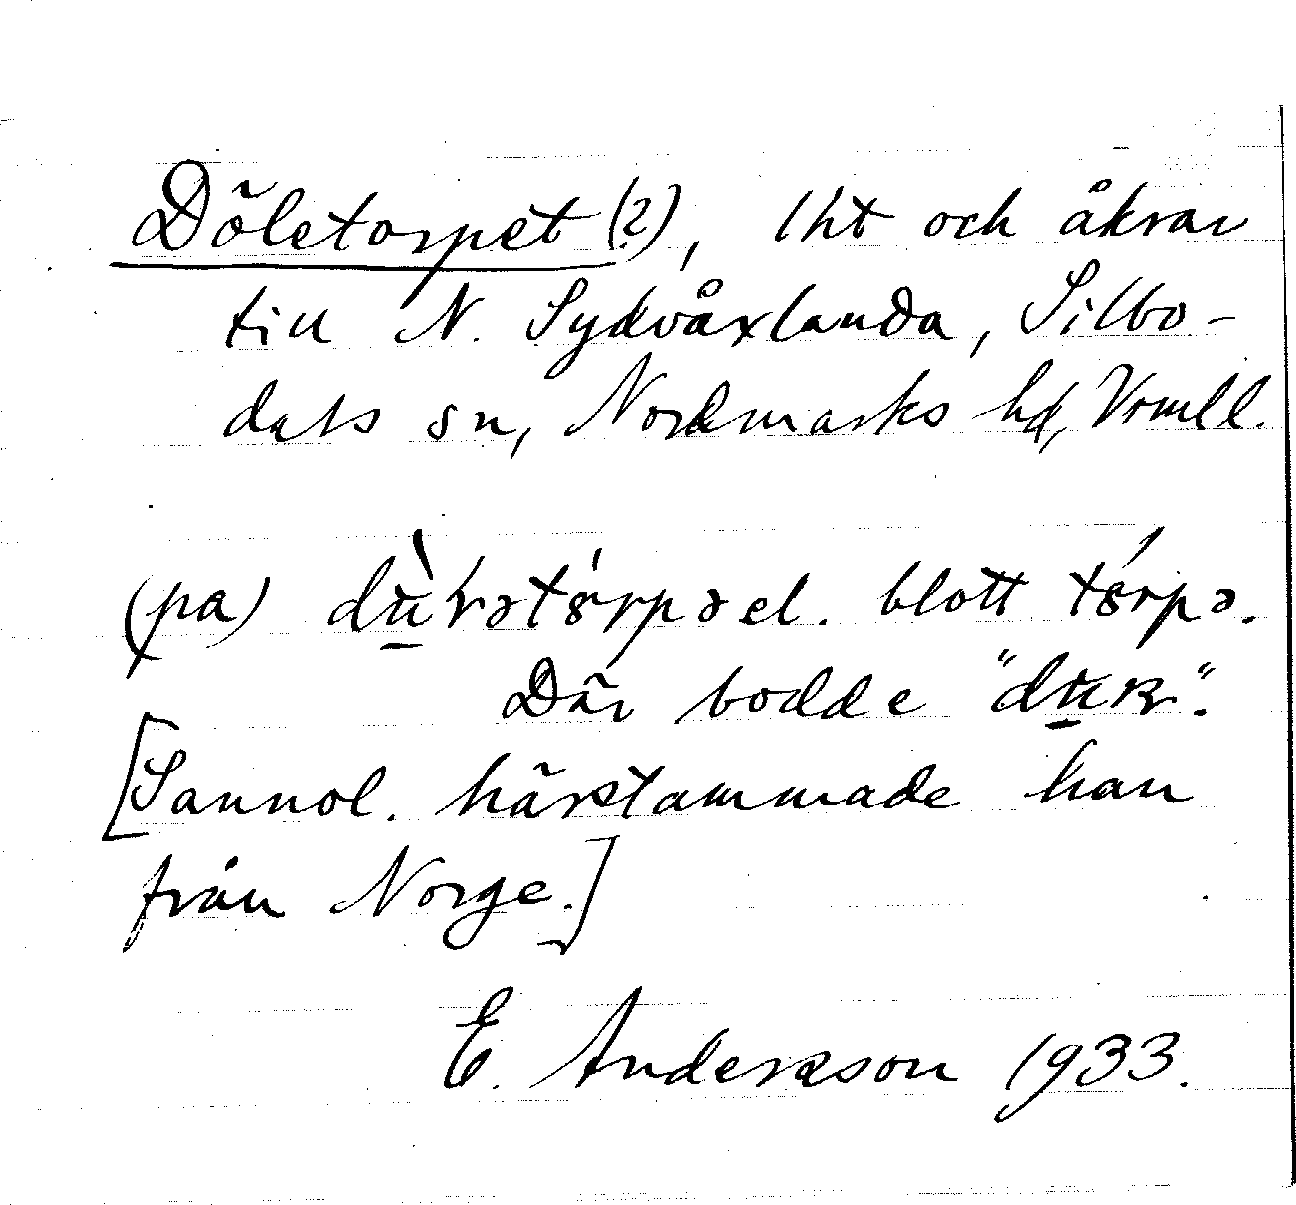 Döletorpet (?), lht och åkrar
till N. Sydvåxlanda, Silbo-
dals sn, Nordmarks hd, Vrmll.
(pa) el. blott
Där bodde
[Sannol. härstammade han
från Norge.]
E. Andersson 1933.